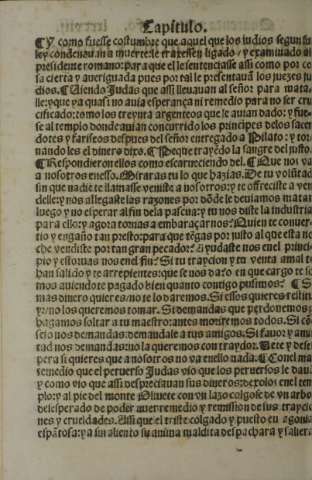 Capitulo.
¶ Y como fuesse costumbre que aquel que los judios segun su
ley condenauã a muerte: le traxessẽ ligado y examinado al
presidente romano: para que el le sentenciasse assi como por co
sa cierta y aueriguada pues por tal le presentauã los juezes ju
dios. ¶ Uiendo Judas que assi lleuauan al señor para mata
lle: y que ya quasi no auia esperança ni remedio para no ser cru
cificado: tomo los treynta argenteos que le auian dado: y fue
se al templo donde auian concurrido los principes delos sacer
dotes y fariseos despues del señor entregado a Pilato: y tor
nando les el dinero dixo. ¶ Peque traydo la sangre del justo.
¶ Respondieron ellos como escarneciendo del. ¶ Que nos va
a nosotros enesso. Miraras tu lo que hazias. De tu volũtad
sin que nadie te llamasse veniste a nosotros: y te offreciste a ven
delle: y nos allegaste las razones por dõde le deuiamos matar
luego y no esperar al fin dela pascua: y tu nos diste la industria
para ello: y agora tornas a embaraçarnos? Quien te conuer
tio y engaño tan presto: para que tẽgas por justo al que esta no
che vendiste por tan gran pecador? Ayudaste nos enel princi
pio y estoruas nos enel fin? Si tu traycion y tu venta a mal te
han salido y te arrepientes: que se nos da? o en que cargo te so
mos auiendote pagado bien quanto contigo pusimos? ¶ Si
mas dinero quieres/no te lo daremos. Si essos quieres restituir
y/no los queremos tomar. Si demandas que perdonemos
hagamos soltar a tu maestro: antes moriremos todos. Si cõ
sejo nos demandas: demandale a tus amigos. Si fauor y ami
stad nos demandas: no la queremos con traydor. Uete y deses
pera si quieres que a nosotros no va enello nada. ¶ Conel ma
remedio que el peruerso Judas vio que los peruersos le dauã
y como vio que assi despreciauan sus dineros: dexolos enel tem
plo: y al pie del monte Oliuete con vn lazo colgose de vn arbol
desesperado de poder auer remedio y remission de sus traycio
nes y crueldades. Assi que el triste colgado y puesto en agonia
espãtosa: y a sin aliento su anima maldita despachara y saliera